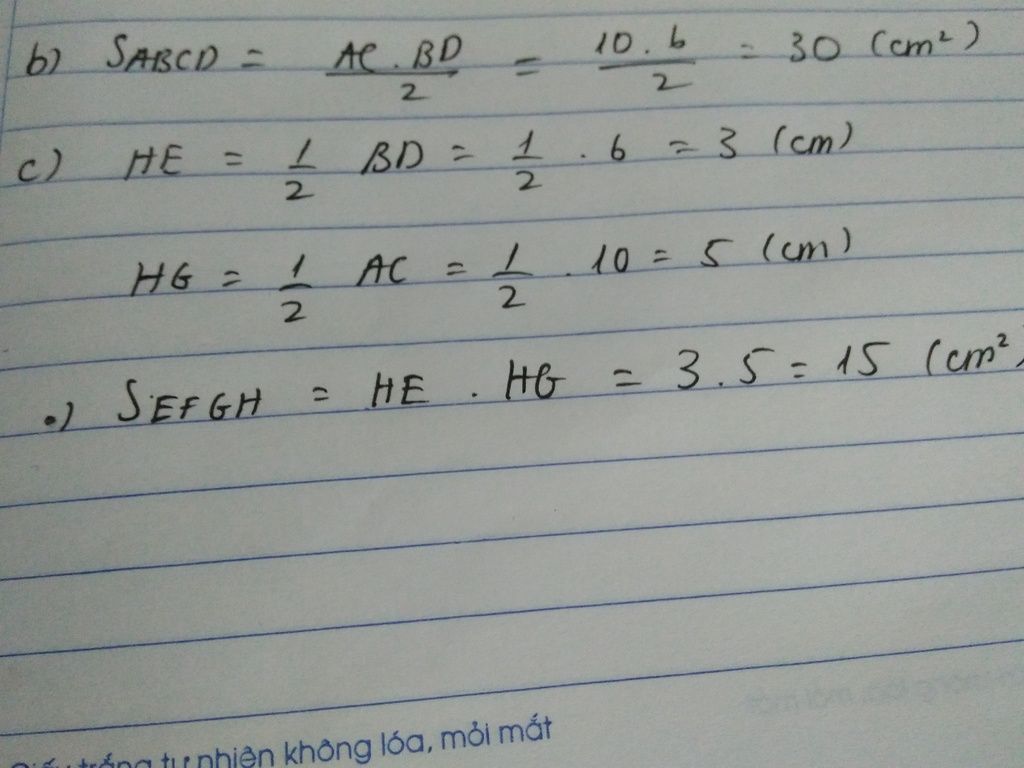 b) SABCD = AC . BD / 2 = 10 . 6 / 2 = 30 (cm²)
c) HE = 1/2 BD = 1/2 . 6 = 3 (cm)
HG = 1/2 AC = 1/2 . 10 = 5 (cm)
•) SEFGH = HE . HG = 3 . 5 = 15 (cm²)
Giấy trắng tự nhiên không lóa, mỏi mắt